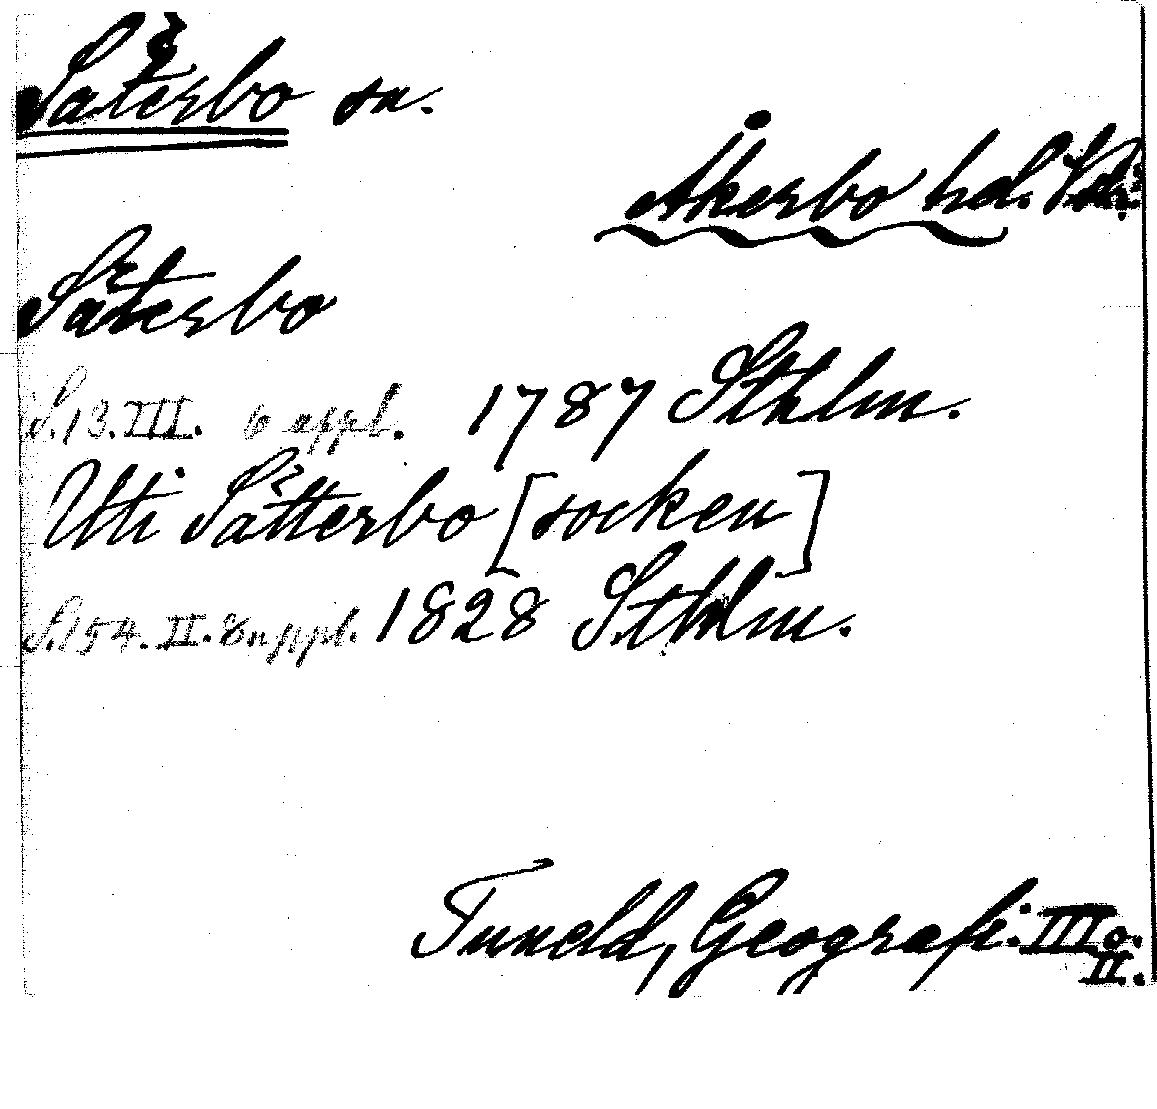 Säterbo sn.
Åkerbo hd. Vstm.
Säterbo
S. 13. III. 6 uppl. 1787 Sthlm.
Uti Sätterbo [socken]
S. 154. II. 8 uppl. 1828 Sthlm.
Tuneld, Geografi: III o.
II.